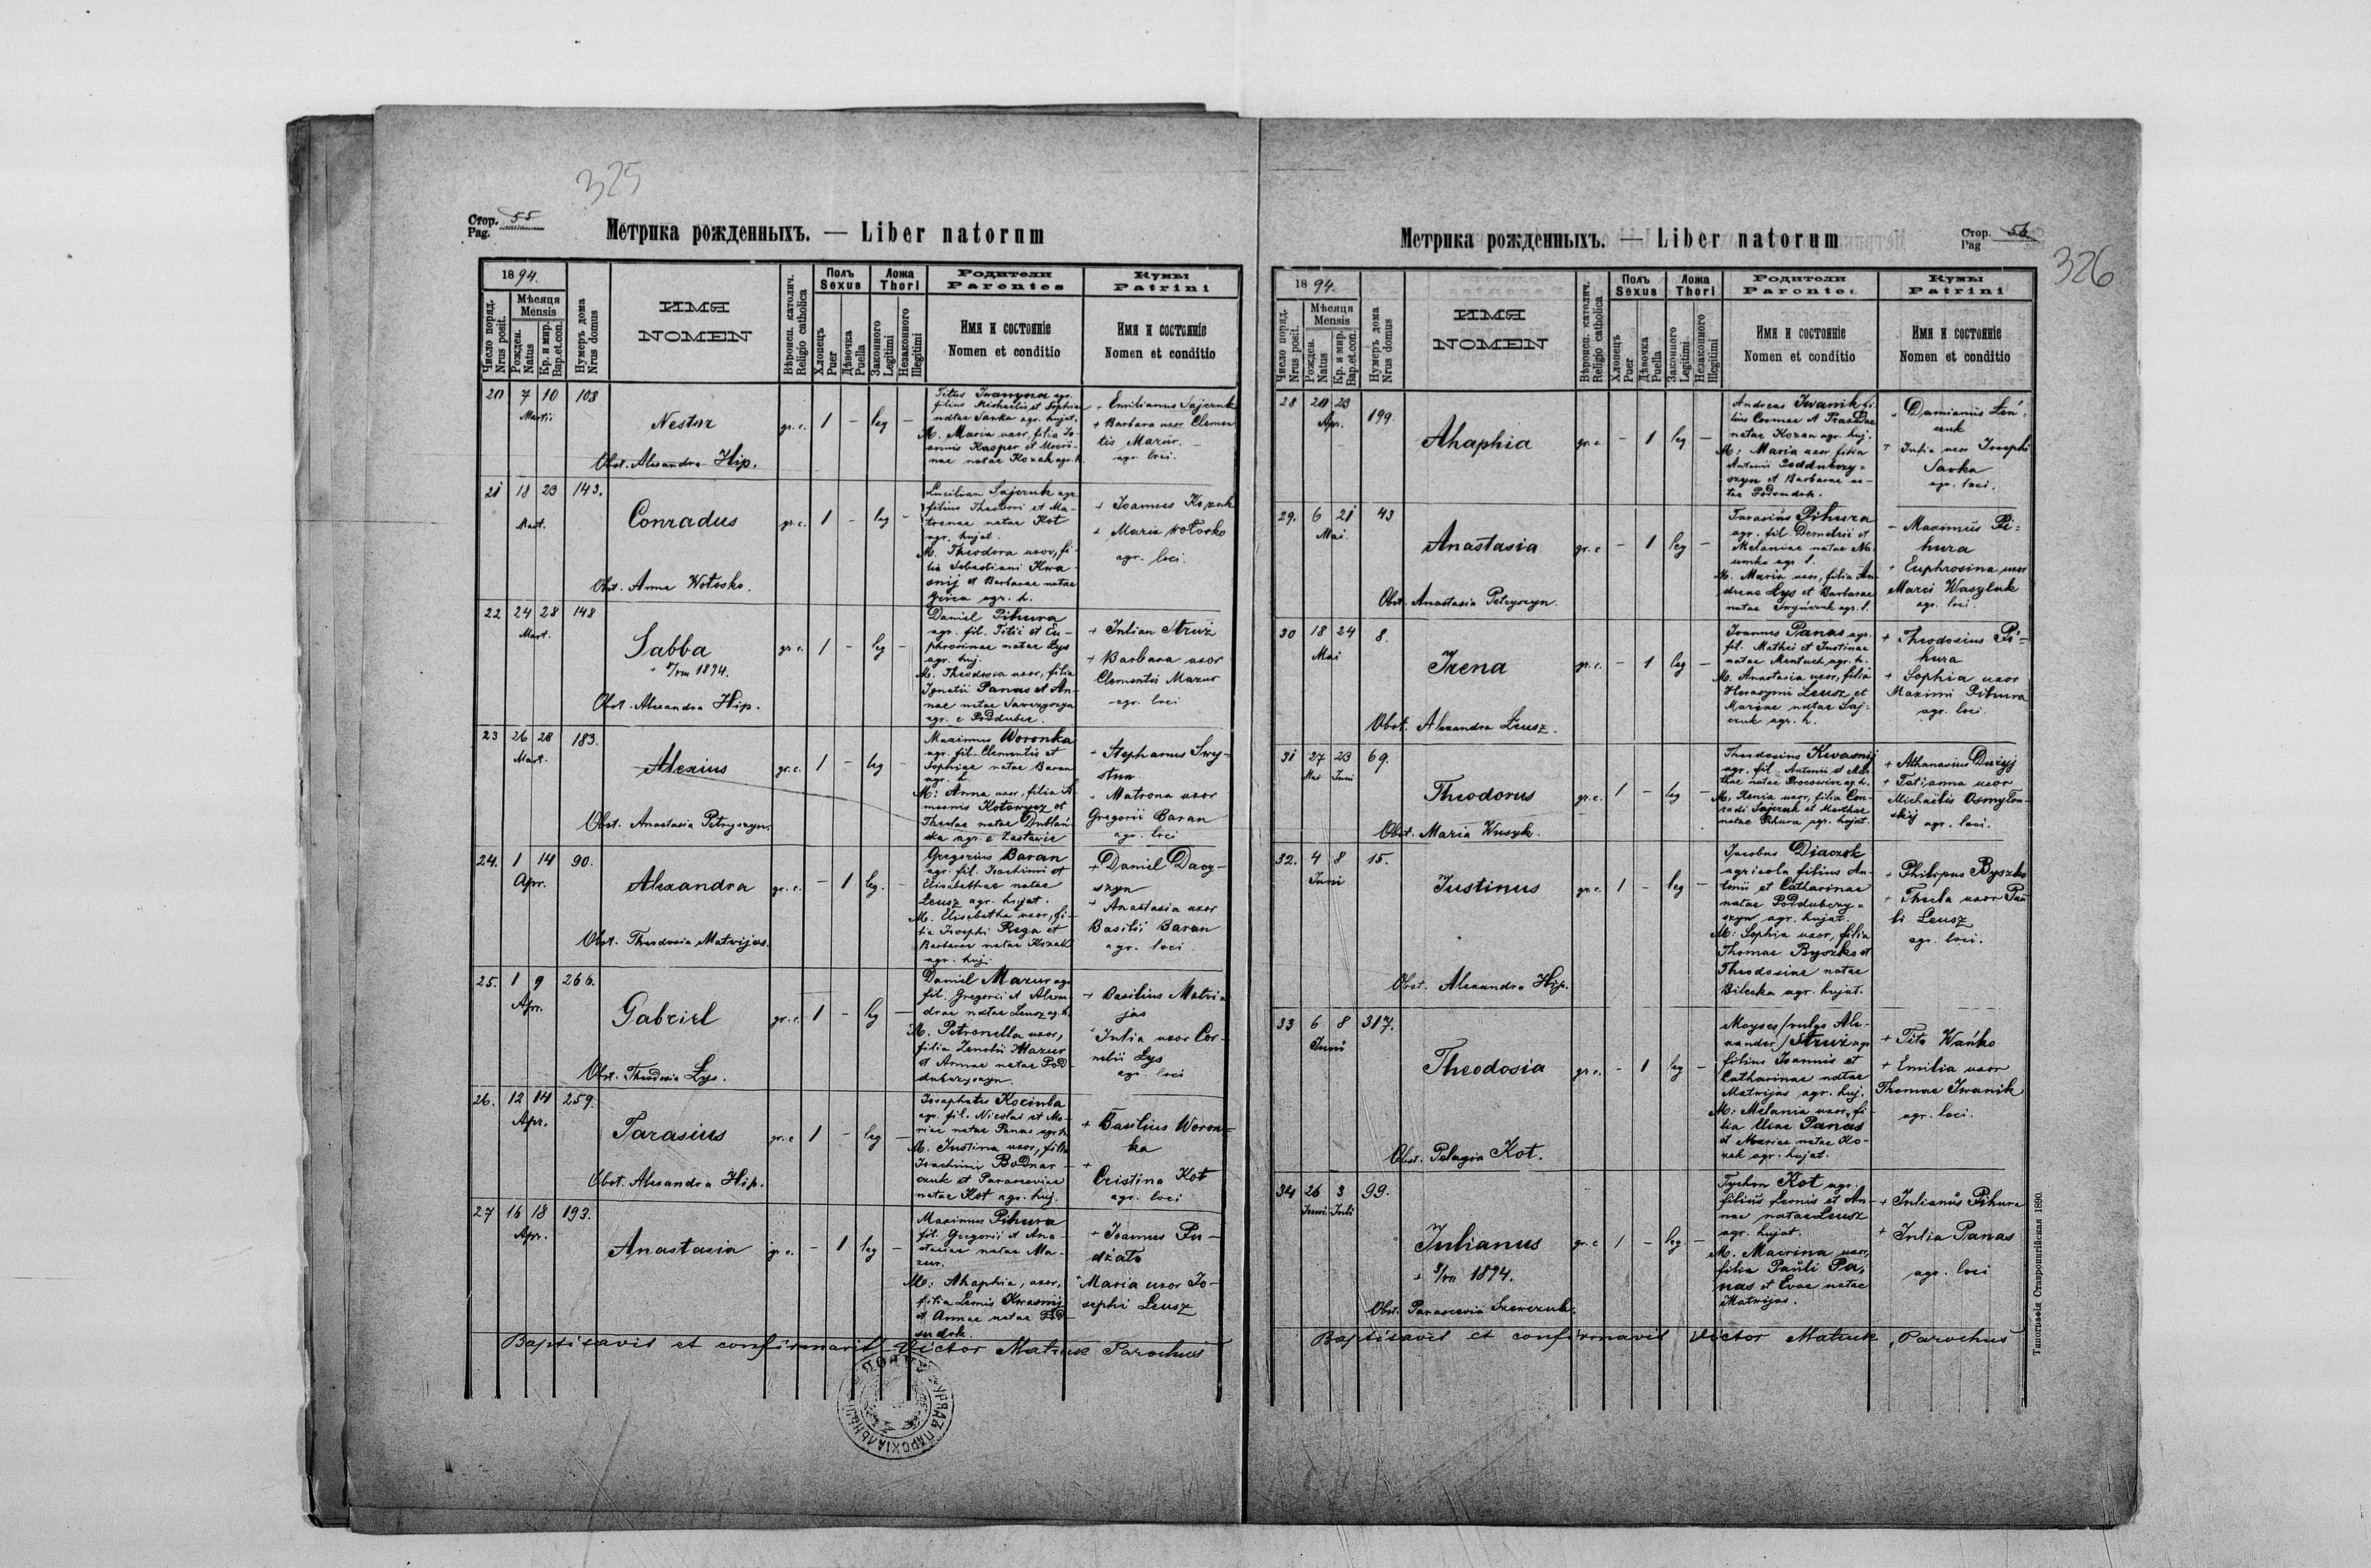 325
Стор. 55
Pag.
Метрика рожденныхъ. — Liber natorum
1894.
Число поряд.
Nrus posit.
Мѣсяця
Mensis
Рожден.
Natus
Кр. и мир.
Bap. et. con.
Нумеръ дома
Nrus domus
ИМЯ
NOMEN
Вѣроисп. католич.
Religio catholica
Полъ
Sexus
Хлопецъ
Puer
Дѣвочка
Puella
Ложа
Thori
Законного
Legitimi
Незаконного
Illegitimi
Родители
Parentes
Имя и состояніе
Nomen et conditio
Кумы
Patrini
Имя и состояніе
Nomen et conditio
20 7 10 108
Martii
Nestor gr. c. 1 – leg –
Obst. Alexandra Hip.
Titus Iwanyna agr.
filius Michaelis et Sophiae
natae Sawka agr. hujat.
M. Maria uxor, filia Jo-
annis Kasper et Macri-
nae natae Kozak agr. h.
+ Emilianus Sajczuk
+ Barbara uxor Clemen
tis Mazur. –
agr. loci.
21 18 23 143.
Mart.
Conradus gr. c. 1 – leg –
Obst. Anna Wołosko.
Sajczuk agr.
filius Theodori et Ma-
tronae natae Kot
agr. hujat.
M. Theodora uxor, fi-
lia Sebastiani Kwa-
snij et Barbarae natae
agr. h.
+ Joannes Kozak
+ Maria Wołosko
agr. loci.
22 24 28 148
Mart.
Sabba gr. c. 1 – leg –
1894.
Obst. Alexandra Hip.
Daniel Pihura
agr. fil. Titii et Eu-
phrosinae natae Łys
agr. huj.
M. Theodosia uxor, filia
Ignatii Panas et An-
nae natae
agr. e Poddubce.
+ Julian Struż
+ Barbara uxor
Clementis Mazur
agr. loci
23 26 28 183.
Mart.
Alexius gr. c. 1 – leg –
Obst. Anastasia Petryszyn.
Maximus Woronka
agr. fil. Clementis et
Sophiae natae Baran
agr. h.
M: Anna uxor, filia Si-
meonis Kotowycz et
Theclae natae Dublań-
ska agr. e Zastawie
+ Stephanus Swy-
stun
+ Matrona uxor
Gregorii Baran
agr. loci
24. 1 14 90.
Apr.
Alexandra gr. c. – 1 leg. –
Obst. Theodosia Matwijas.
Gregorius Baran
agr. fil. Joachimi et
Elisabethae natae
Łeusz agr. hujat.
M. Elisabetha uxor, fi-
lia Josephi Rega et
Barbarae natae Kozak
agr. huj.
+ Daniel Dacy-
szyn
+ Anastasia uxor
Basilii Baran
agr. loci.
25. 1 9 266.
Apr.
Gabriel gr. c. 1 – leg –
Obst. Theodosia Łys.
Daniel Mazur agr
fil. Gregorii et Alexan
drae natae Leusz ag. h.
M. Petronella uxor,
filia Zenobii Mazur
et Annae natae Pod
dubczyszyn.
+ Basilius Matwi
jas
+ Julia uxor Cor-
nelii Łys
agr. loci
26. 12 14 259.
Apr.
Tarasius gr. c 1 – leg –
Obst. Alexandra Hip.
Josaphatus Kociuba
agr. fil. Nicolai et Ma-
riae natae Panas agr. h.
M. Justina uxor, filia
Joachimi Bodnar-
czuk et Parasceviae
natae Kot agr. huj.
+ Basilius Woron-
ka
+
Cristina Kot
agr. loci
27 16 18 193.
Apr.
Anastasia gr. c. – 1 leg –
Maximus Pihura
fil. Gregorii et Ana-
stasiae natae Ma-
zur.
M: Ahaphia, uxor,
filia Leonis Kwasnij
et Annae natae Pod
sudok.
+ Joannes Pu-
dżało
+ Maria uxor Jo-
sephi Leusz
Baptisavit et confirmavit Victor Matiuk Parochus
326
Стор. 56
Pag
Метрика рожденныхъ. — Liber natorum
1894.
Число поряд.
Nrus posit.
Мѣсяця
Mensis
Рожден.
Natus
Кр. и мир.
Bap. et. con.
Нумеръ дома
Nrus domus
ИМЯ
NOMEN
Вѣроисп. католич.
Religio catholica
Полъ
Sexus
Хлопецъ
Puer
Дѣвочка
Puella
Ложа
Thori
Законного
Legitimi
Незаконного
Illegitimi
Родители
Parentes
Имя и состояніе
Nomen et conditio
Кумы
Patrini
Имя и состояніе
Nomen et conditio
28 20 23 199.
Apr.
Ahaphia gr. c – 1 leg –
Andreas Iwanik fi-
lius Cosmae et Praxedae
natae Kozan agr. huj.
M: Maria uxor filia
Antonii Poddubczy=
szyn et Barbarae na-
tae Podsudok.
+ Damianus Łeń-
czuk
+ Julia uxor Josephi
Sawka
agr. loci.
29. 6 21 43
Mai.
Anastasia gr. c – 1 leg –
Obst. Anastasia Petryszyn.
Tarasius Pihura
agr. fil. Demetrii et
Melaniae natae Na
umko agr. l.
M. Maria uxor, filia An
dreae Łys et Barbarae
natae agr. l.
– Maximus Pi=
hura
+ Euphrosina uxor
Marci Wasyluk
agr. loci.
30 18 24 8.
Mai
Irena gr. c. – 1 leg –
Obst. Alexandra Łeusz.
Joannes Panas agr.
fil. Mathei et Justinae
natae Mentuch agr. h.
M. Anastasia uxor, filia
Herasymi Leusz et
Mariae natae Saj-
czuk agr. h.
+ Theodosius Pi-
hura
+ Sophia uxor
Maximi Pihura
agr. loci.
31 27 23 69.
Mai Juni
Theodorus gr. c. 1 – leg –
Obst. Maria Wusyk.
Theodosius Kwasnij
agr. fil. Antonii et Mar
thae natae agr. h.
M. Xenia uxor, filia Con-
radi Sajczuk et Marthae
natae Pihura agr. hujat.
+ Athanasius Dużyj
+ Tatianna uxor
Michaëlis Osmyłow
skij agr. loci.
32. 4 8 15.
Juni
Justinus gr. c. 1 – leg –
Obst. Alexandra Hip.
Jacobus Diaczok
agricola filius An-
tonii et Catharinae
natae Poddubczy=
szyn agr. hujat.
M: Sophia uxor, filia
Thomae Byszko et
Theodosiae natae
Bilecka agr. hujat.
+ Philipus Byszko
+ Thecla uxor Pau
li Leusz
agr. loci.
33 6 8 317.
Juni
Theodosia gr. c. – 1 leg –
Obst. Pelagia Kot.
Moyses /vulgo Ale-
xander/ Struż agr
filius Joannis et
Catharinae natae
Matwijas agr. huj.
M: Melania uxor, fi-
lia Eliae Panas
et Mariae natae Ko-
zak agr. hujat.
+ Tito Wańko
+ Emilia uxor
Thomae Iwanik
agr. loci.
34 26 3 99.
Juni Juli
Julianus gr. c 1 – leg –
1894.
Obst. Parascevia Szewczuk.
Tychon Kot agr.
filius Leonis et An-
nae natae Leusz
agr. hujat.
M. Macrina uxor,
filia Pauli Pa-
nas et Evae natae
Matwijas.
+ Julianus Pihura
+ Julia Panas
agr. loci
Baptisavit et confirmavit Victor Matiuk, Parochus
Типографія Ставропигійская 1890.